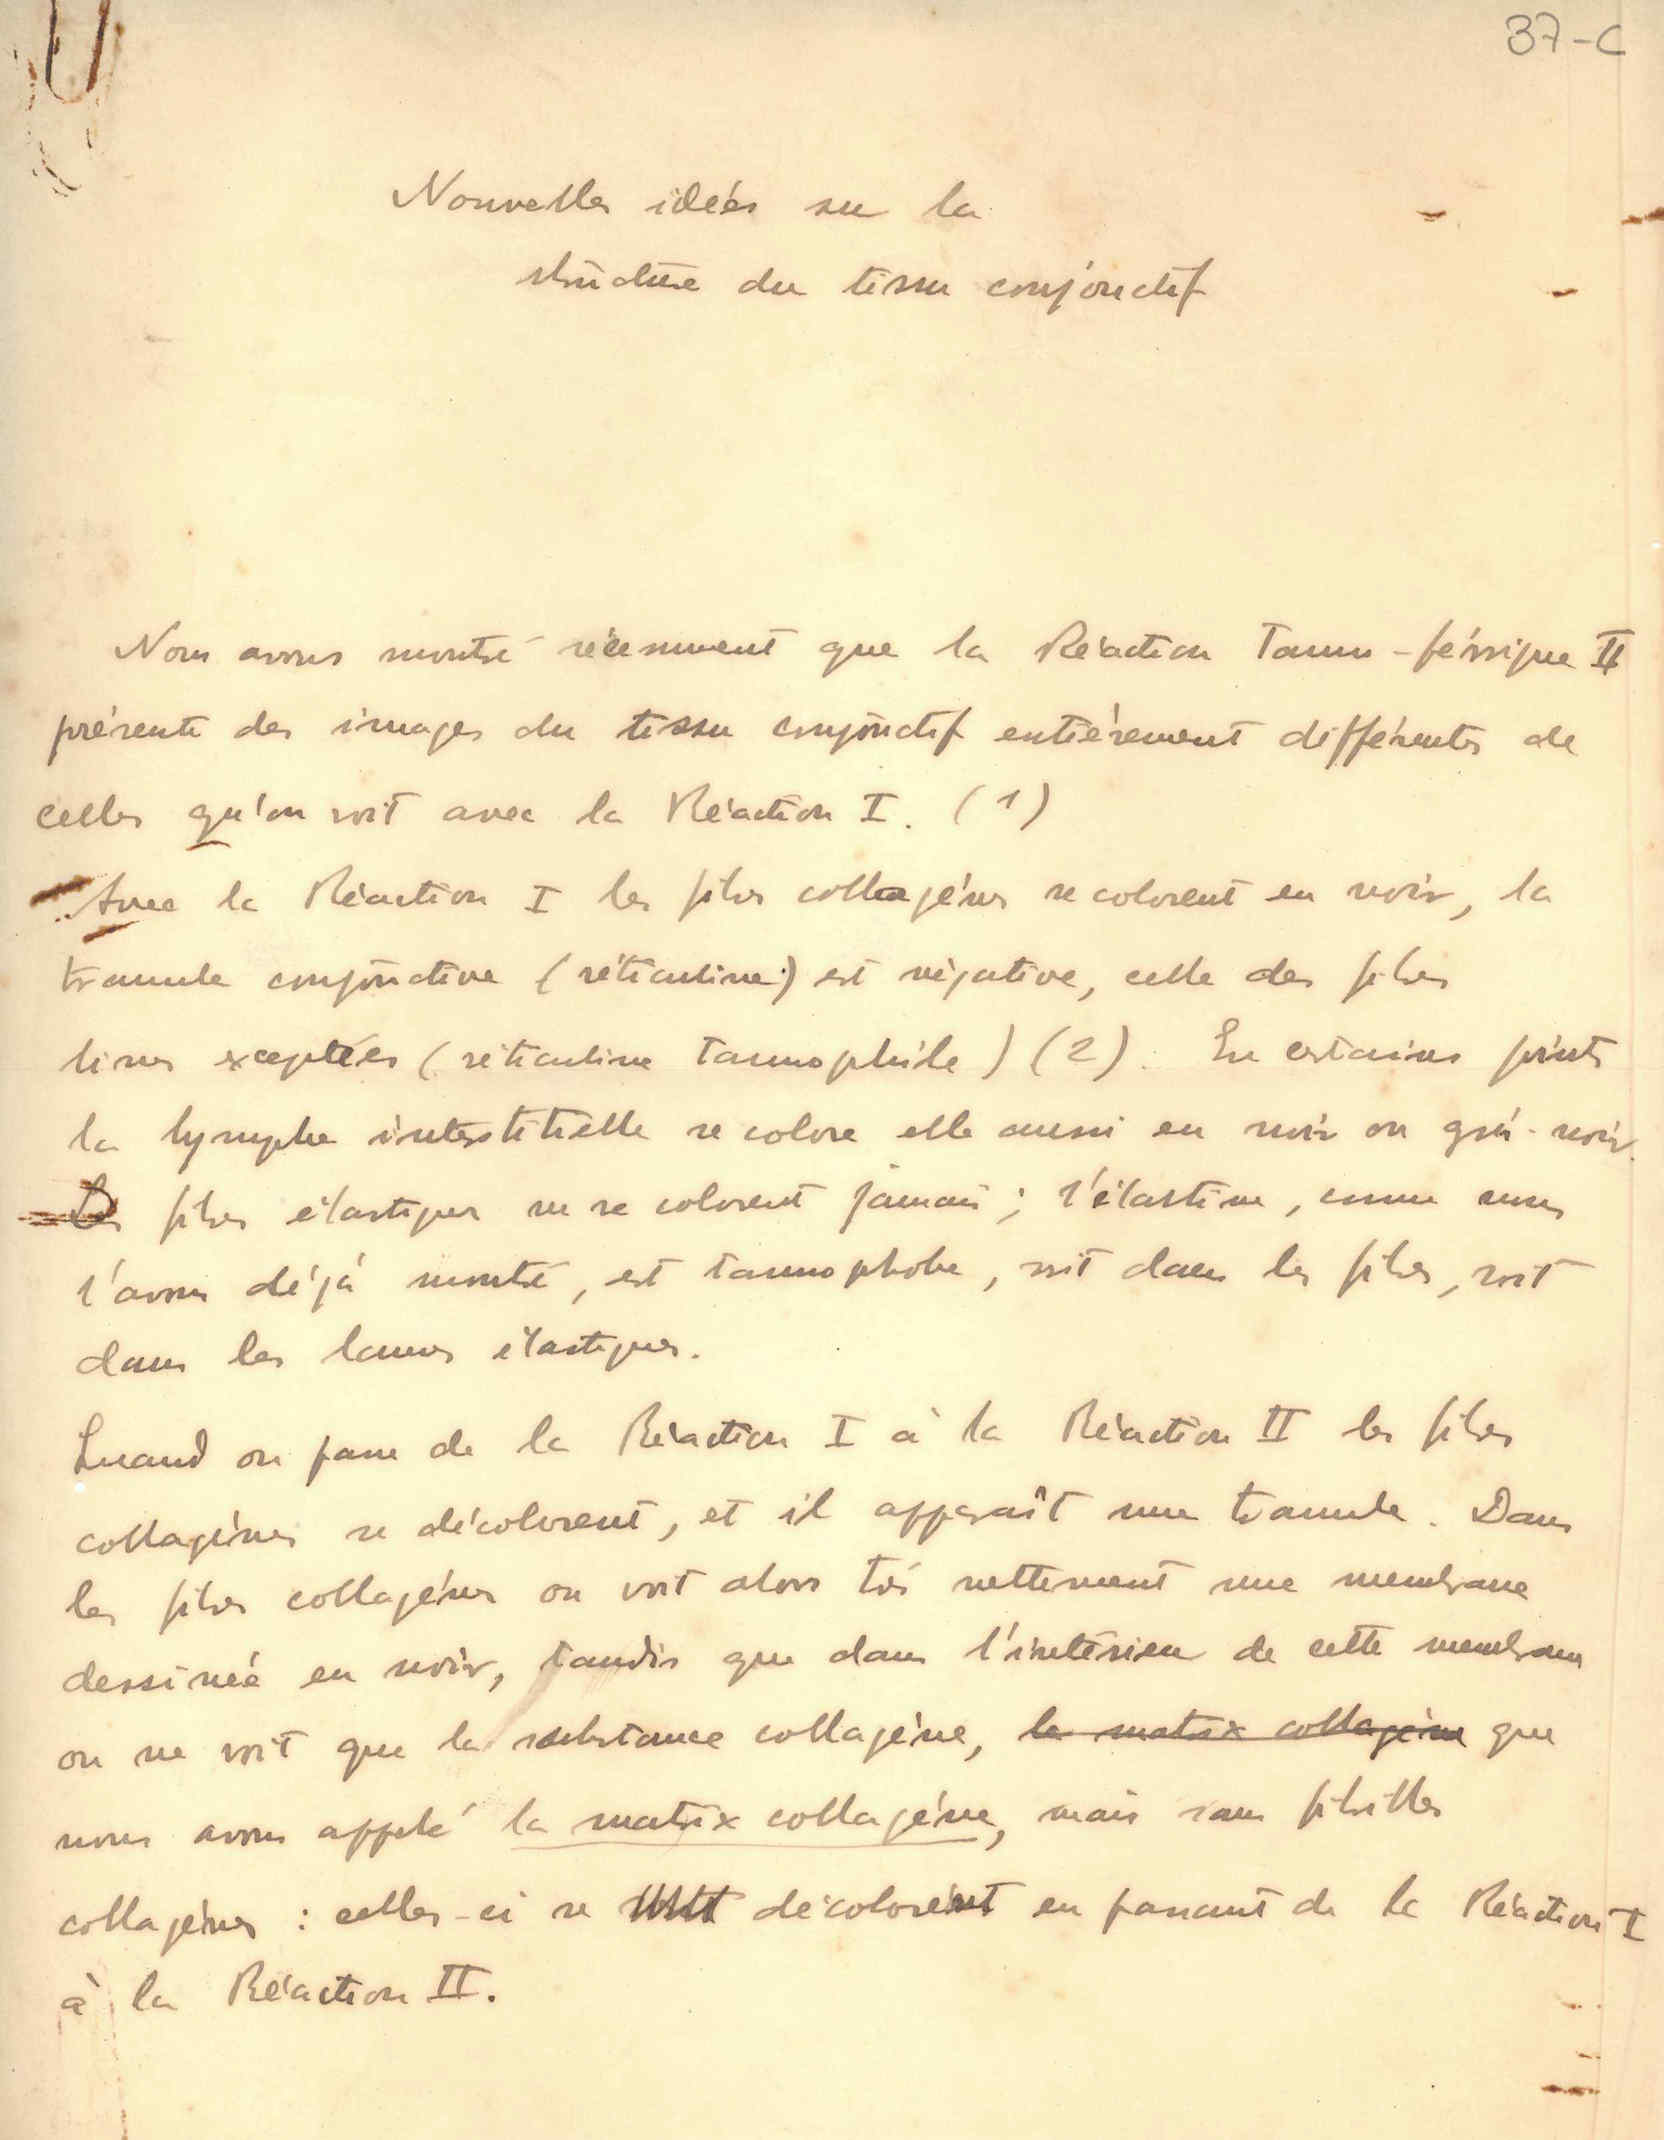 37-C
Nouvelles idées sur la
structure du tissu conjonctif
Nous avons montré récemment que la Réaction Tanno-férrique II
présente des images du tissu conjonctif entièrement différentes de
celles qu'on voit avec la Réaction I. (1)
Avec la Réaction I les fibres collagènes se colorent en noir, la
tramule conjonctive (réticuline) est négative, celle des fibres
lisses exceptées (réticuline tannophile) (2). En certains points
la lymphe interstitielle se colore elle aussi en noir ou gris-noir.
Les fibres élastiques ne se colorent jamais ; l'élastine, comme nous
l'avons déjà montré, est tannophobe, soit dans les fibres, soit
dans les lames élastiques.
Quand on passe de la Réaction I à la Réaction II les fibres
collagènes se décolorent, et il apparaît une tramule. Dans
les fibres collagènes on voit alors très nettement une membrane
dessinée en noir, tandis que dans l'intérieur de cette membrane
on ne voit que la substance collagène, la matrix collagène que
nous avons appelé la matrix collagène, mais sans fibrilles
collagènes : celles-ci se décolorent en passant de la Réaction I
à la Réaction II.